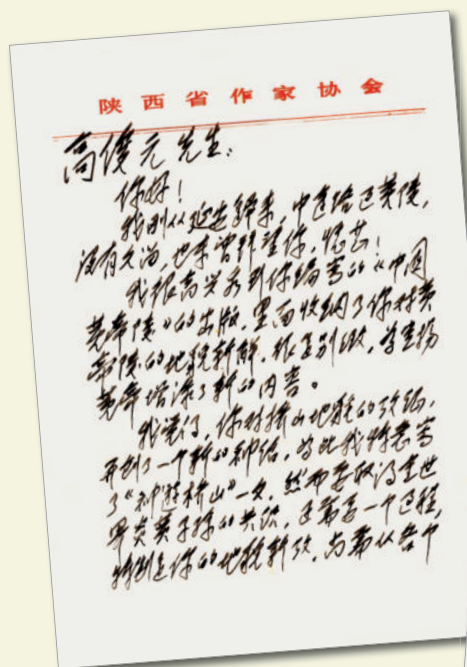 陕西省作家协会
高俊元先生:
你好!
我刚从延安归来,中途路过黄陵,
没有久治,也未曾拜望你,憾甚!
我很高兴看到你编著的《中国
黄帝陵》的出版,里面收纳了你对黄
帝陵的地貌新解,很是别致,为宣扬
黄帝增添了新的内容。
我觉得,你对桥山地貌的
开创了一个新的,为此我特意写
了“神游桥山”一文。然而要取得全世
界炎黄子孙的共识,还需要一个过程,
特别是你的地貌新,尚需从各个